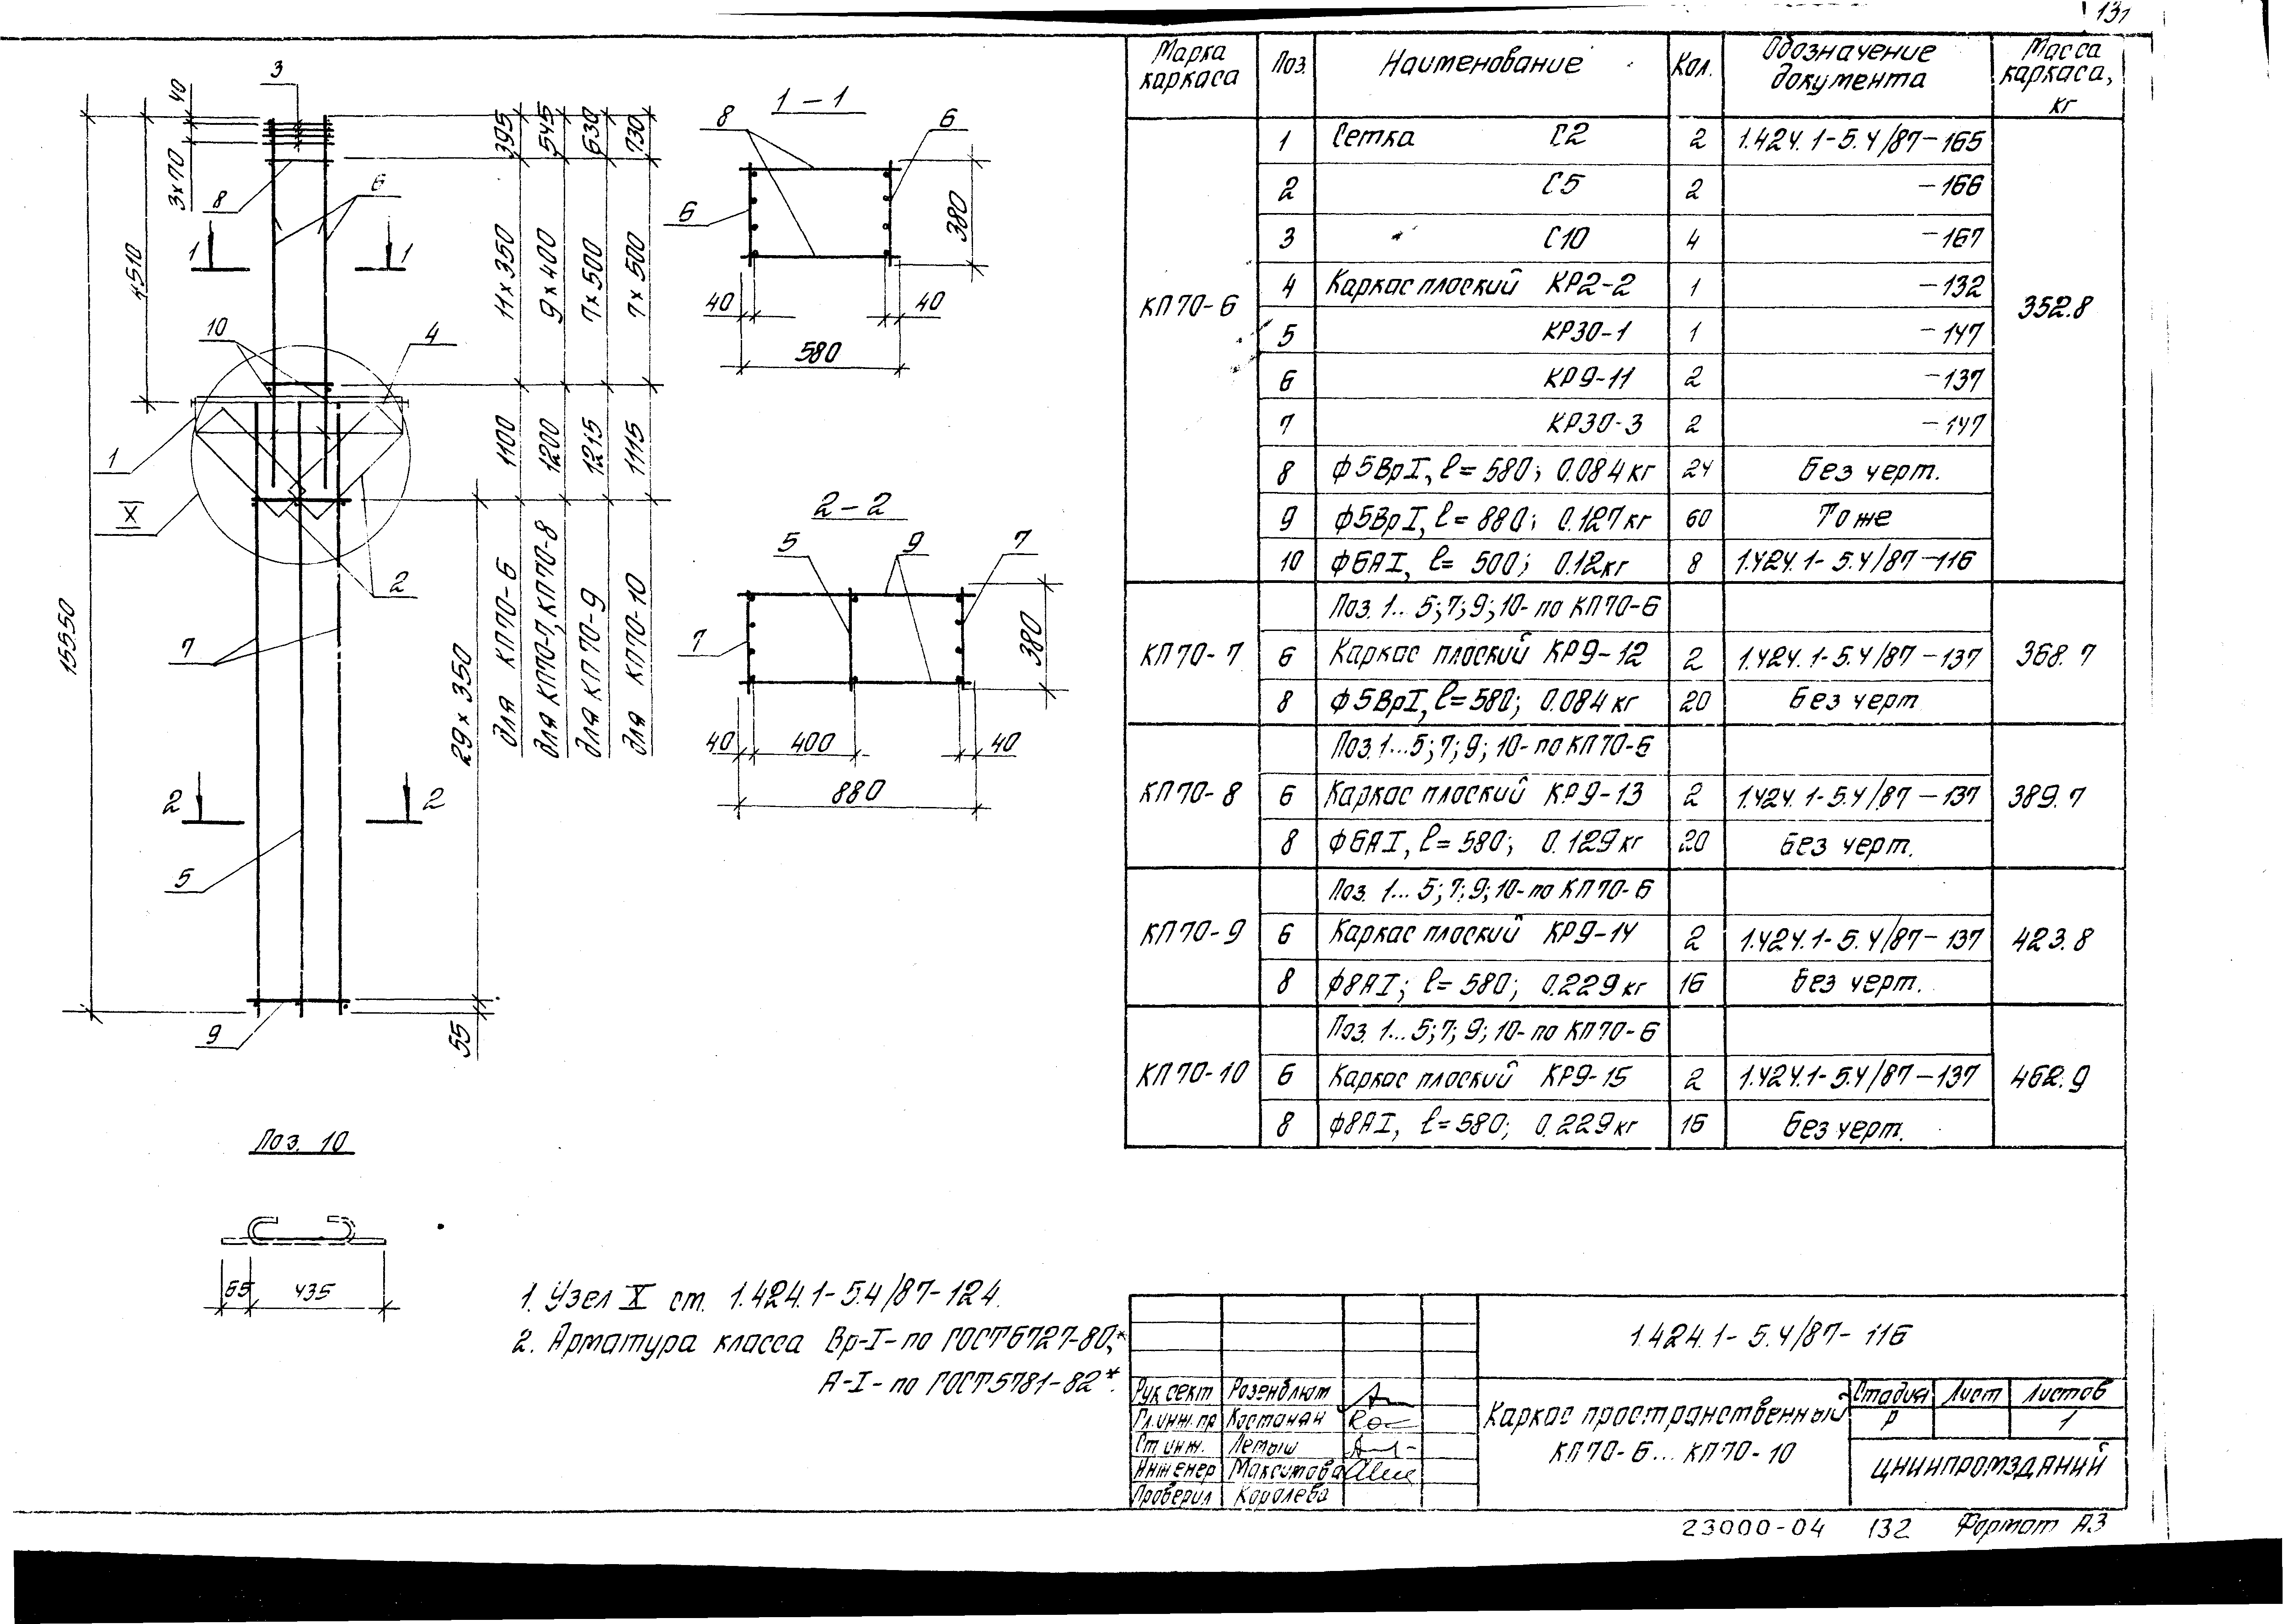 131
3
40
3х70
8
6
1 1
4510
10
4
1
X
2
15550
7
29х350
2 2
5
9
55
395 545 630 730
11х350 9х400 7х500 7х500
1100 1200 1215 1115
для КП70-6
для КП70-7, КП70-8
для КП70-9
для КП70-10
1-1
8 6
6
380
40 40
580
2-2
5 9 7
7
380
40 400 40
880
Поз. 10
55 435
1. Узел X см. 1.424.1-5.4/87-124.
2. Арматура класса Вр-I-по ГОСТ 6727-80*,
А-I-по ГОСТ 5781-82*.
Марка каркаса Поз. Наименование Кол. Обозначение документа Масса каркаса, кг
КП70-6 352.8
1 Сетка С2 2 1.424.1-5.4/87-165
2 С5 2 -166
3 С10 4 -167
4 Каркас плоский КР2-2 1 -132
5 КР30-1 1 -147
6 КР9-11 2 -137
7 КР30-3 2 -147
8 ф5ВрI, ℓ=580; 0.084кг 24 Без черт.
9 ф5ВрI, ℓ=880; 0.127кг 60 То же
10 ф6АI, ℓ=500; 0.12кг 8 1.424.1-5.4/87-116
Поз. 1..5;7;9;10-по КП70-6
КП70-7 6 Каркас плоский КР9-12 2 1.424.1-5.4/87-137 368.7
8 ф5ВрI, ℓ=580; 0.084кг 20 Без черт
Поз.1...5;7;9;10-по КП70-6
КП70-8 6 Каркас плоский КР9-13 2 1.424.1-5.4/87-137 389.7
8 ф6АI, ℓ=580; 0.129кг 20 Без черт.
Поз. 1...5;7;9;10-по КП70-6
КП70-9 6 Каркас плоский КР9-14 2 1.424.1-5.4/87-137 423.8
8 ф8АI; ℓ=580; 0.229кг 16 Без черт.
Поз. 1...5;7;9;10-по КП70-6
КП70-10 6 Каркас плоский КР9-15 2 1.424.1-5.4/87-137 462.9
8 ф8АI, ℓ=580; 0.229кг 16 Без черт.
1.424.1-5.4/87-116
Рук.сект Розенблюм
Гл.инж.пр Костанян
Ст.инж. Летыш
Инженер Максимова
Проверил Королева
Каркас пространственный
КП70-6...КП70-10
Стадия Лист Листов
Р 1
ЦНИИПРОМЗДАНИЙ
23000-04 132 Формат А3